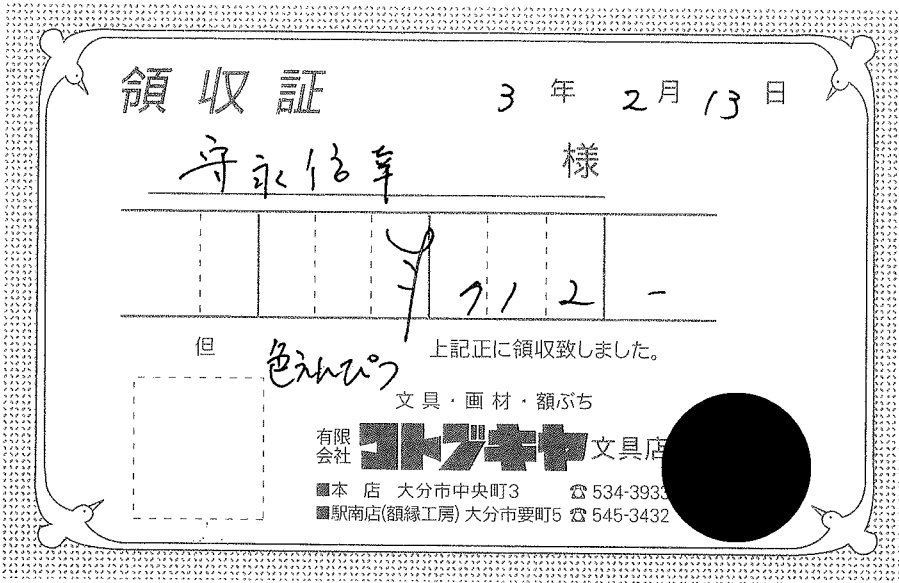 領収証 3年 2月 13日
守永信幸 様
¥712-
但 色えんぴつ 上記正に領収致しました。
文具・画材・額ぶち
有限会社 コトブキヤ 文具店
■本 店 大分市中央町3 ☎534-3933
■駅南店(額縁工房) 大分市要町5 ☎545-3432